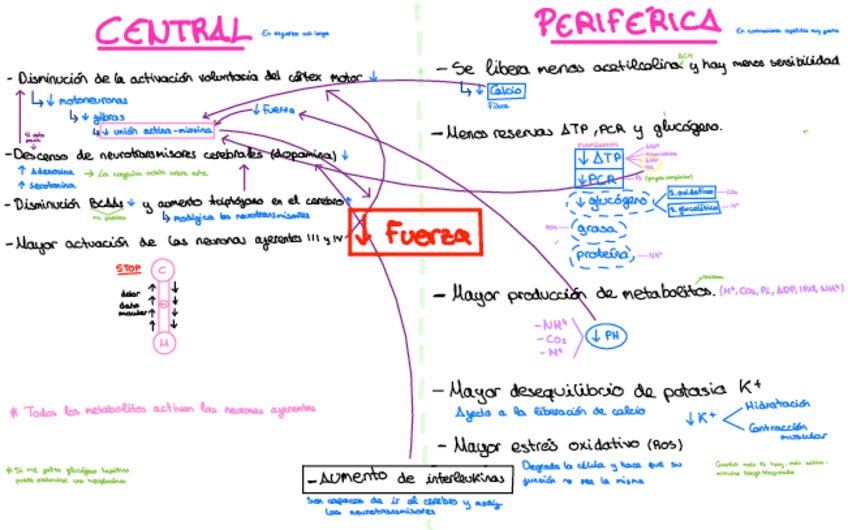 CENTRAL
En esfuerzos más largos
- Disminución de la activación voluntaria del córtex motor ↓
↳ ↓ motoneuronas
↳ ↓ fibras
↳ ↓ unión actina-miosina
↓ fuerza
- Descenso de neurotransmisores cerebrales (dopamina) ↓
↑ Adenosina → La cafeína actúa sobre esta
↑ Serotonina
- Disminución BCAAs ↓ y aumento triptófano en el cerebro ↑
↳ modifica los neurotransmisores
- Mayor actuación de las neuronas aferentes III y IV
STOP
C
dolor
daño
muscular
M
* Todos los metabolitos activan las neuronas aferentes
* Si me falta glucógeno hepático
puede producirse una hipoglucemia
↓ Fuerza
- Aumento de interleukinas
Son capaces de ir al cerebro y modif
los neurotransmisores
PERIFÉRICA
En contracciones repetidas muy
- Se libera menos acetilcolina y hay menos sensibilidad
ACH
↳ ↓ Calcio
Fibra
- Menos reservas ATP, PCR y glucógeno.
↓ ATP
↓ PCR
↓ glucógeno
S. oxidativo - CO₂
S. glucolítico - H⁺
ROS - grasa
proteína - NH⁴
- Mayor producción de metabolitos. (H⁺, CO₂, Pi, ADP, IPM, NH⁴)
- NH⁴
- CO₂
- H⁺
↓ PH
- Mayor desequilibrio de potasio K⁺
Afecta a la liberación de calcio
↓ K⁺
Hidratación
Contracción
muscular
- Mayor estrés oxidativo (ROS)
Degrada la célula y hace que su
función no sea la misma
Cuanto más Pi hay, más actina-
miosina tengo bloqueada